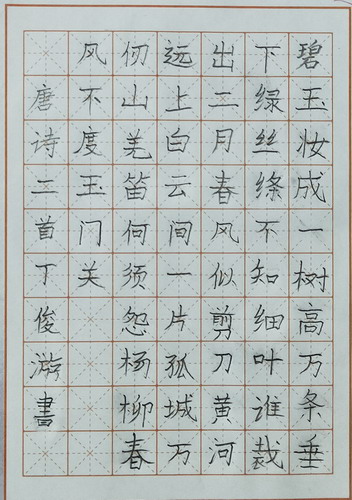 碧玉妆成一树高万条垂
下绿丝绦不知细叶谁裁
出二月春风似剪刀黄河
远上白云间一片孤城万
仞山羌笛何须怨杨柳春
风不度玉门关
唐诗二首丁俊游书